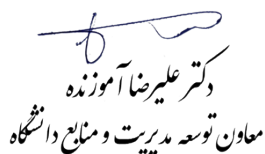 دکتر علیرضا آموزنده
معاون توسعه مدیریت و منابع دانشگاه